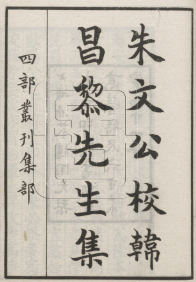 朱文公校韓
昌黎先生集
四部叢刊集部